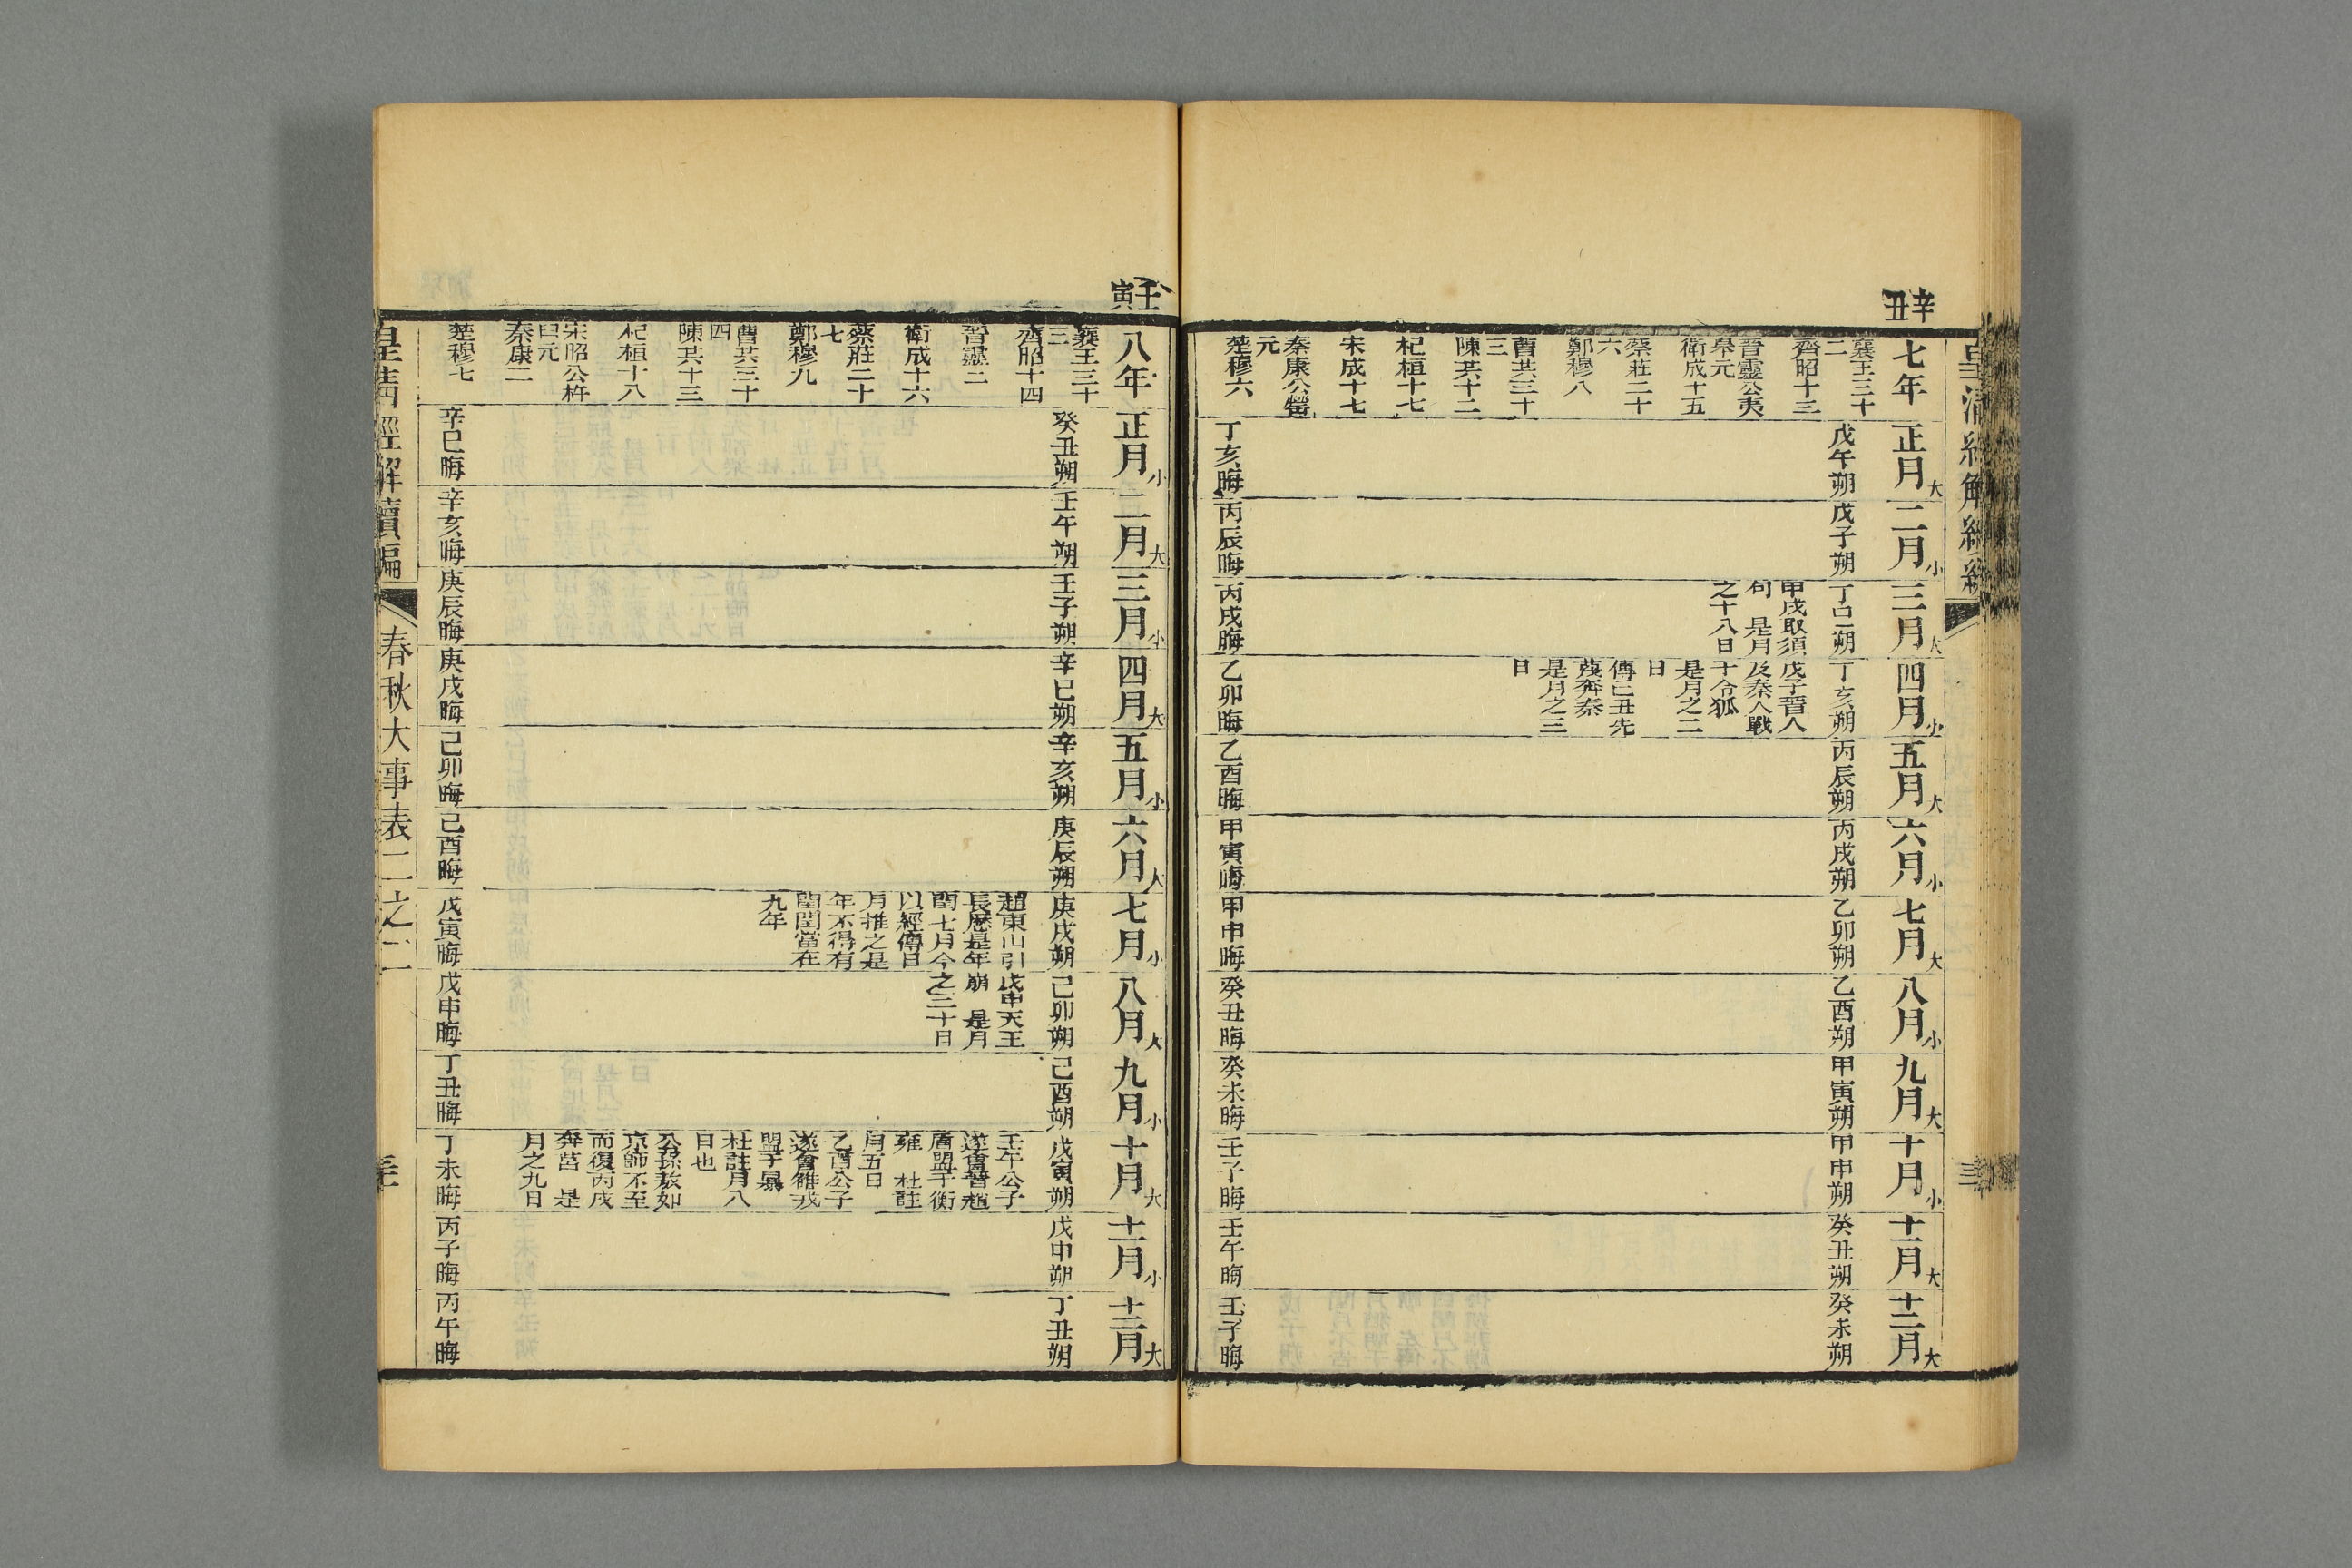 辛丑
七年
襄王三十
二
齊昭十三
晉靈公夷
皋元
衛成十五
蔡莊二十
六
鄭穆八
曹共三十
三
陳共十二
杞桓十七
宋成十七
秦康公罃
元
楚穆六
正月大
戊午朔
丁亥晦
二月小
戊子朔
丙辰晦
三月大
丁巳朔
甲戌取須
句 是月
之十八日
丙戌晦
四月小
丁亥朔
戊子晉人
及秦人戰
于令狐
是月之二
日
傳己丑先
蔑奔秦
是月之三
日
乙卯晦
五月大
丙辰朔
乙酉晦
六月小
丙戌朔
甲寅晦
七月大
乙卯朔
甲申晦
八月小
乙酉朔
癸丑晦
九月大
甲寅朔
癸未晦
十月小
甲申朔
壬子晦
十一月大
癸丑朔
壬午晦
十二月大
癸未朔
壬子晦
壬寅
八年
襄王三十
三
齊昭十四
晉靈二
衛成十六
蔡莊二十
七
鄭穆九
曹共三十
四
陳共十三
杞桓十八
宋昭公杵
臼元
秦康二
楚穆七
正月小
癸丑朔
辛巳晦
二月大
壬午朔
辛亥晦
三月小
壬子朔
庚辰晦
四月大
辛巳朔
庚戌晦
五月小
辛亥朔
己卯晦
六月大
庚辰朔
己酉晦
七月小
庚戌朔
趙東山引
長歷是年
閏七月今
以經傳日
月推之是
年不得有
閏閏當在
九年
戊寅晦
八月大
己卯朔
戊申天王
崩 是月
之三十日
戊申晦
九月小
己酉朔
丁丑晦
十月大
戊寅朔
壬午公子
遂會晉趙
盾盟于衡
雍 杜註
月五日
乙酉公子
遂會雒戎
盟于暴
杜註月八
日也
公孫敖如
京師不至
而復丙戌
奔莒 是
月之九日
丁未晦
十一月小
戊申朔
丙子晦
十二月大
丁丑朔
丙午晦
皇清經解續編
春秋大事表二之二